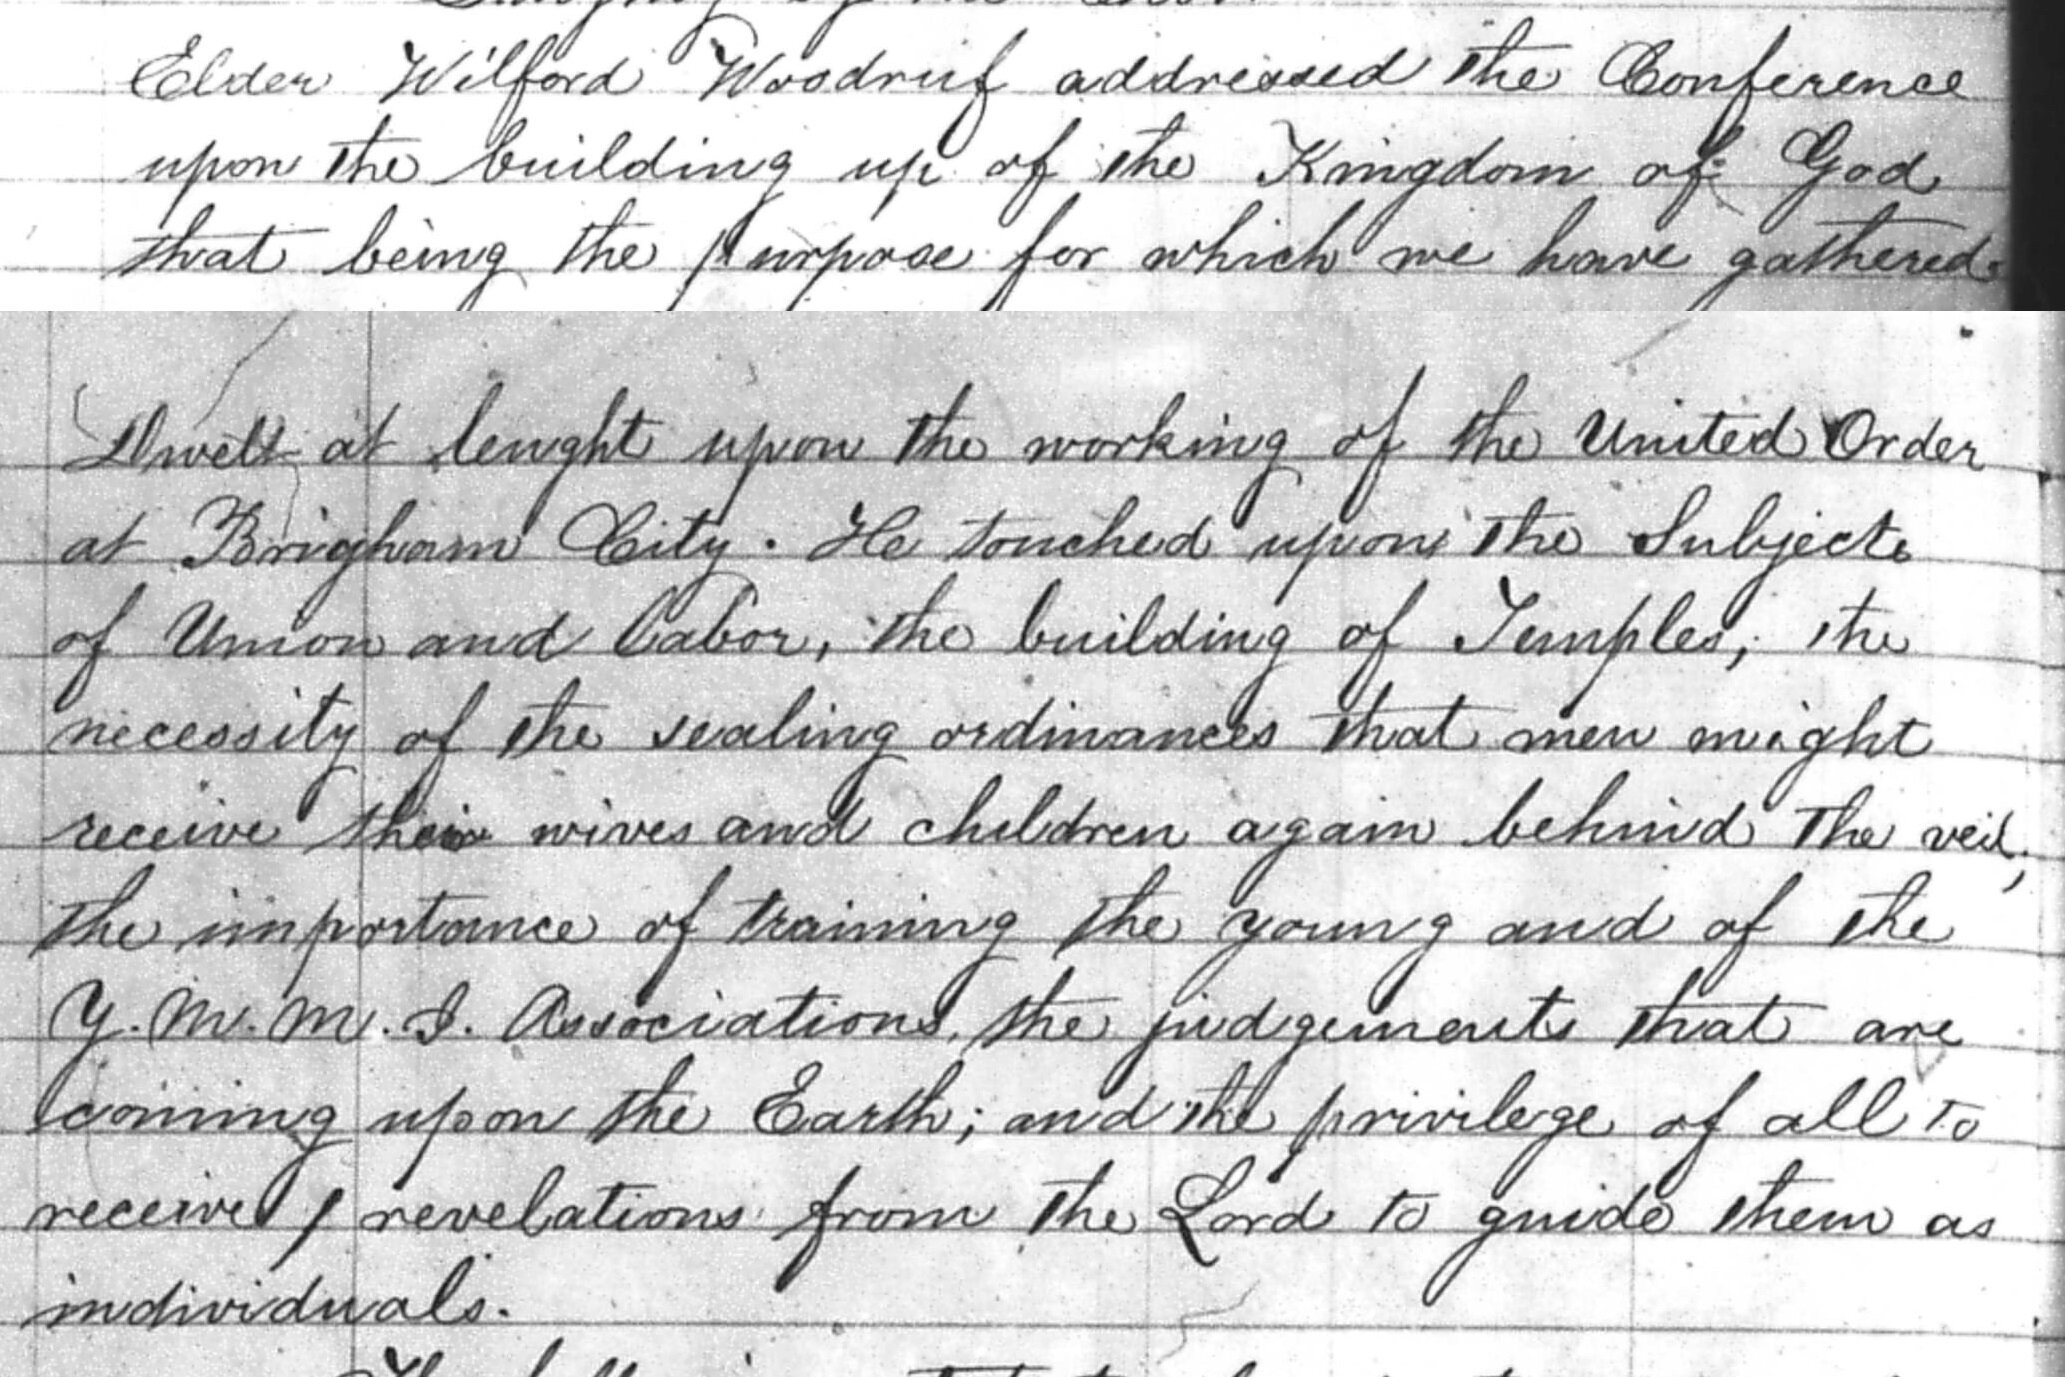 Singing by the Choir.
Elder Wilford Woodruf addressed the Conference
upon the building up of the Kingdom of God
that being the purpose for which we have gathered.
Dwelt at lenght upon the working of the United Order
at Brigham City. He touched upon the Subjects
of Union and Labor, the building of Temples; the
necessity of the sealing ordinances that men might
receive their wives and children again behind the veil;
the importance of training the young and of the
Y. M. M. I. Associations, the judgements that are
coming upon the Earth; and the privilege of all to
receive revelations from the Lord to guide them as
individuals.